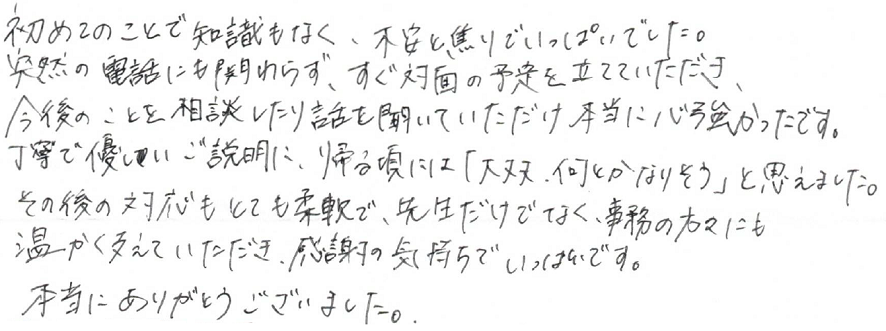 初めてのことで知識もなく、不安と焦りでいっぱいでした。
突然の電話にも関わらず、すぐ対面の予定を立てていただき、
今後のことを相談したり話を聞いていただけ本当に心強かったです。
丁寧で優しい ご説明に、帰る頃には「大丈夫、何とかなりそう」と思えました。
その後の対応もとても柔軟で、先生だけでなく、事務の方々にも
温かく支えていただき、感謝の気持ちでいっぱいです。
本当にありがとうございました。